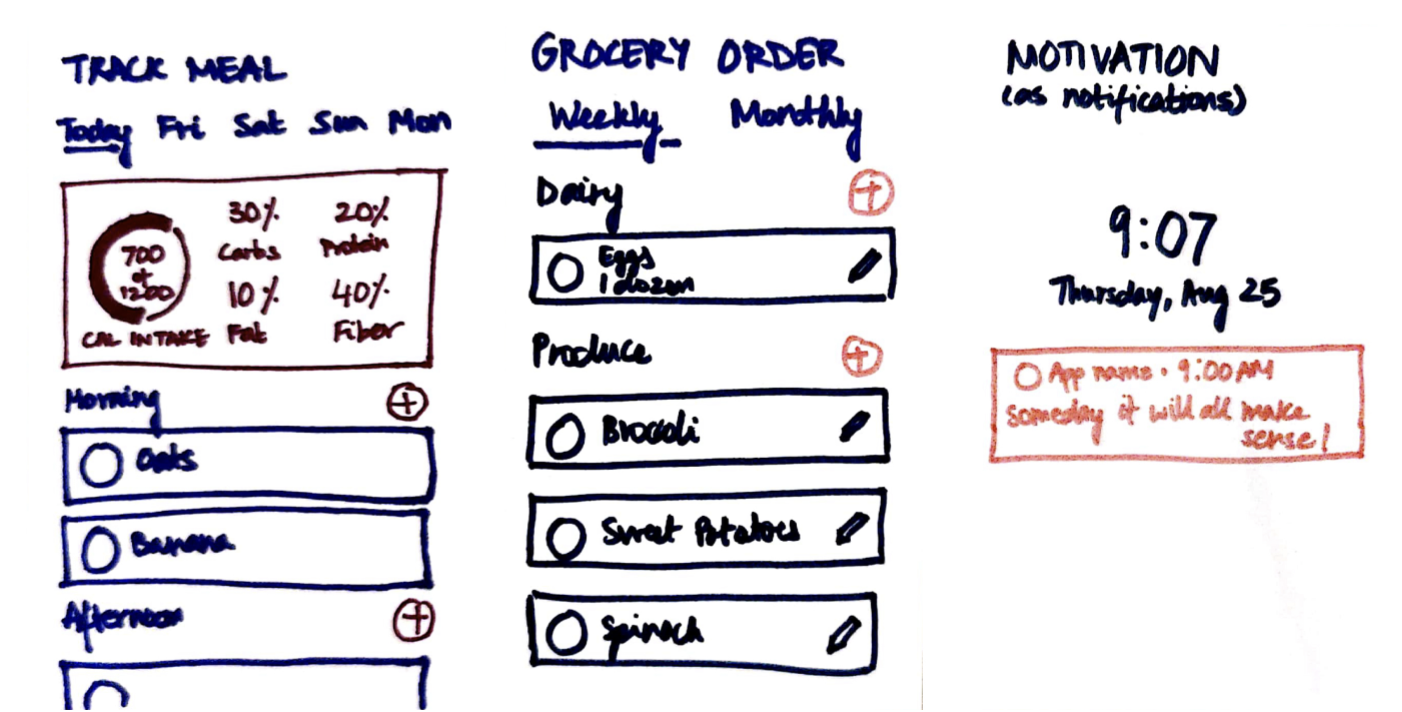 TRACK MEAL
Today Fri Sat Sun Mon
30% 20%
Carbs Protein
700
of
1200
10% 40%
CAL INTAKE Fat Fiber
Morning
Oats
Banana
Afternoon
GROCERY ORDER
Weekly Monthly
Dairy
Eggs
1 dozen
Produce
Broccoli
Sweet Potatoes
Spinach
MOTIVATION
(as notifications)
9:07
Thursday, Aug 25
App name • 9:00 AM
someday it will all make
sense!